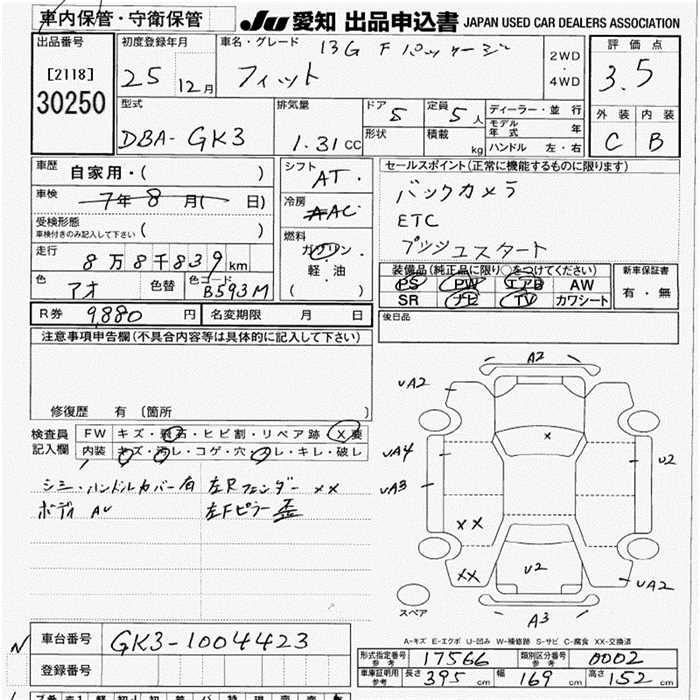 車内保管・守衛保管
JU 愛知 出品申込書 JAPAN USED CAR DEALERS ASSOCIATION
出品番号 初度登録年月 車名・グレード 13G F パッケージ 2WD・4WD 評価点
[2118] 25 12月 フィット 3.5
30250
型式 排気量 ドア 5 定員 5人 ディーラー・並行 外装 内装
モデル年式 年
DBA-GK3 1.31CC 形状 積載 kg ハンドル 左・右 C B
車歴 自家用・( )
シフト AT・
セールスポイント(正常に機能するものに限ります)
車検 7年8月( 日)
冷房 AAC
バックカメラ
受検形態 ( )
車検付きのみ記入して下さい
ETC
燃料 ガソリン・軽油・( )
プッシュスタート
走行 8万8千839km
装備品(純正品に限り○をつけてください) 新車保証書
色 アオ 色替 色コード B593M
PS PW エアB AW 有・無
SR ナビ TV カワシート
R券 9880円 名変期限 月 日
後日品
注意事項申告欄(不具合内容等は具体的に記入して下さい)
修復歴 有 〔箇所 〕
検査員記入欄 FW キズ・飛石・ヒビ割・リペア跡 X要
内装 キズ・汚レ・コゲ・穴・ヌレ・キレ・破レ
シミ・ハンドルカバー有 左Rフェンダー XX
ボディ AU 左Fピラー歪
A2
UA2
X
UA4
U2
UA3
XX
XX U2
UA2
スペア
A3
A-キズ E-エクボ U-凹み W-補修跡 S-サビ C-腐食 XX-交換済
N
車台番号 GK3-1004423
形式指定番号 参考 17566 類別区分番号 参考 0002
登録番号
車庫証明用 参考 長さ 395cm 幅 169cm 高さ 152cm